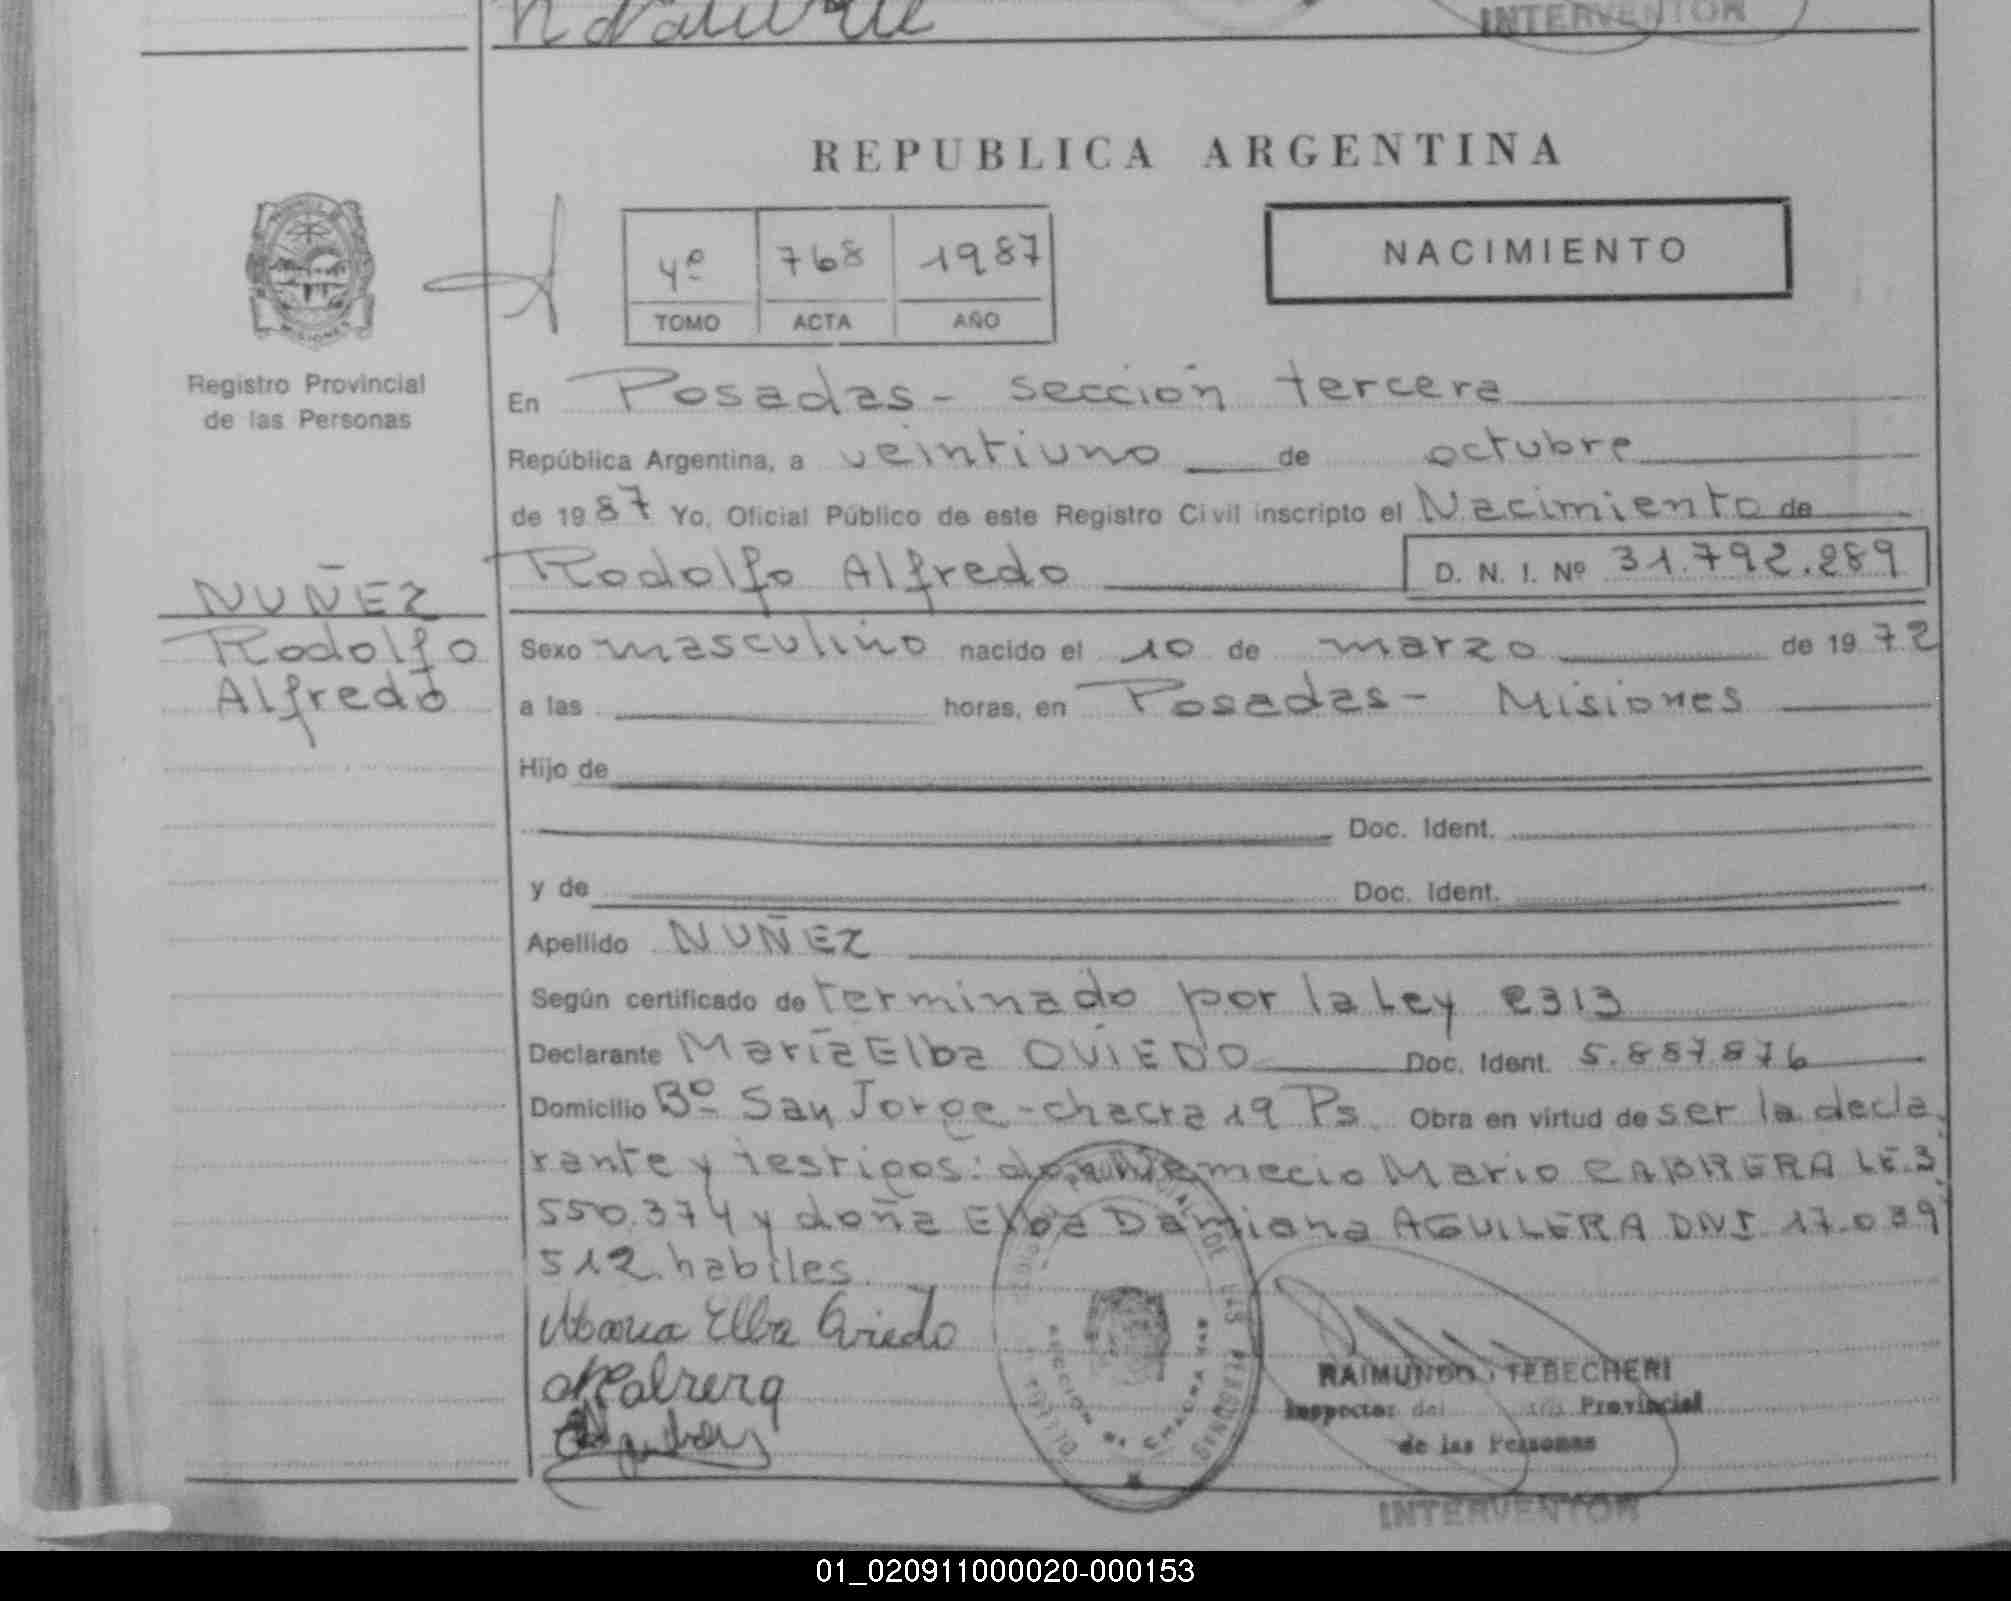 INTERVENTOR
REPUBLICA ARGENTINA
4º 768 1987
TOMO ACTA AÑO
NACIMIENTO
MISIONES
Registro Provincial
de las Personas
NUÑEZ
Rodolfo
Alfredo
En Posadas - sección tercera
República Argentina, a veintiuno de octubre
de 1987 Yo, Oficial Público de este Registro Civil inscripto el Nacimiento de
Rodolfo Alfredo D. N. I. Nº 31.792.289
Sexo masculino nacido el 10 de marzo de 1972
a las horas, en Posadas - Misiones
Hijo de
Doc. Ident.
y de Doc. Ident.
Apellido NUÑEZ
Según certificado de terminado por la Ley 2313
Declarante María Elba OVIEDO Doc. Ident. 5.887.876
Domicilio Bº San Jorge - chacra 19 Ps. Obra en virtud de ser la decla
rante y testigos: don Nemecio Mario CABRERA L.E. 3
550.374 y doña Elba Damiana AGUILERA DNI 17.039
512. habiles.
Maria Elba Oviedo
Cabrera
RAIMUNDO TEBECHERI
Inspector del Provincial
de las Personas
INTERVENTOR
01_020911000020-000153